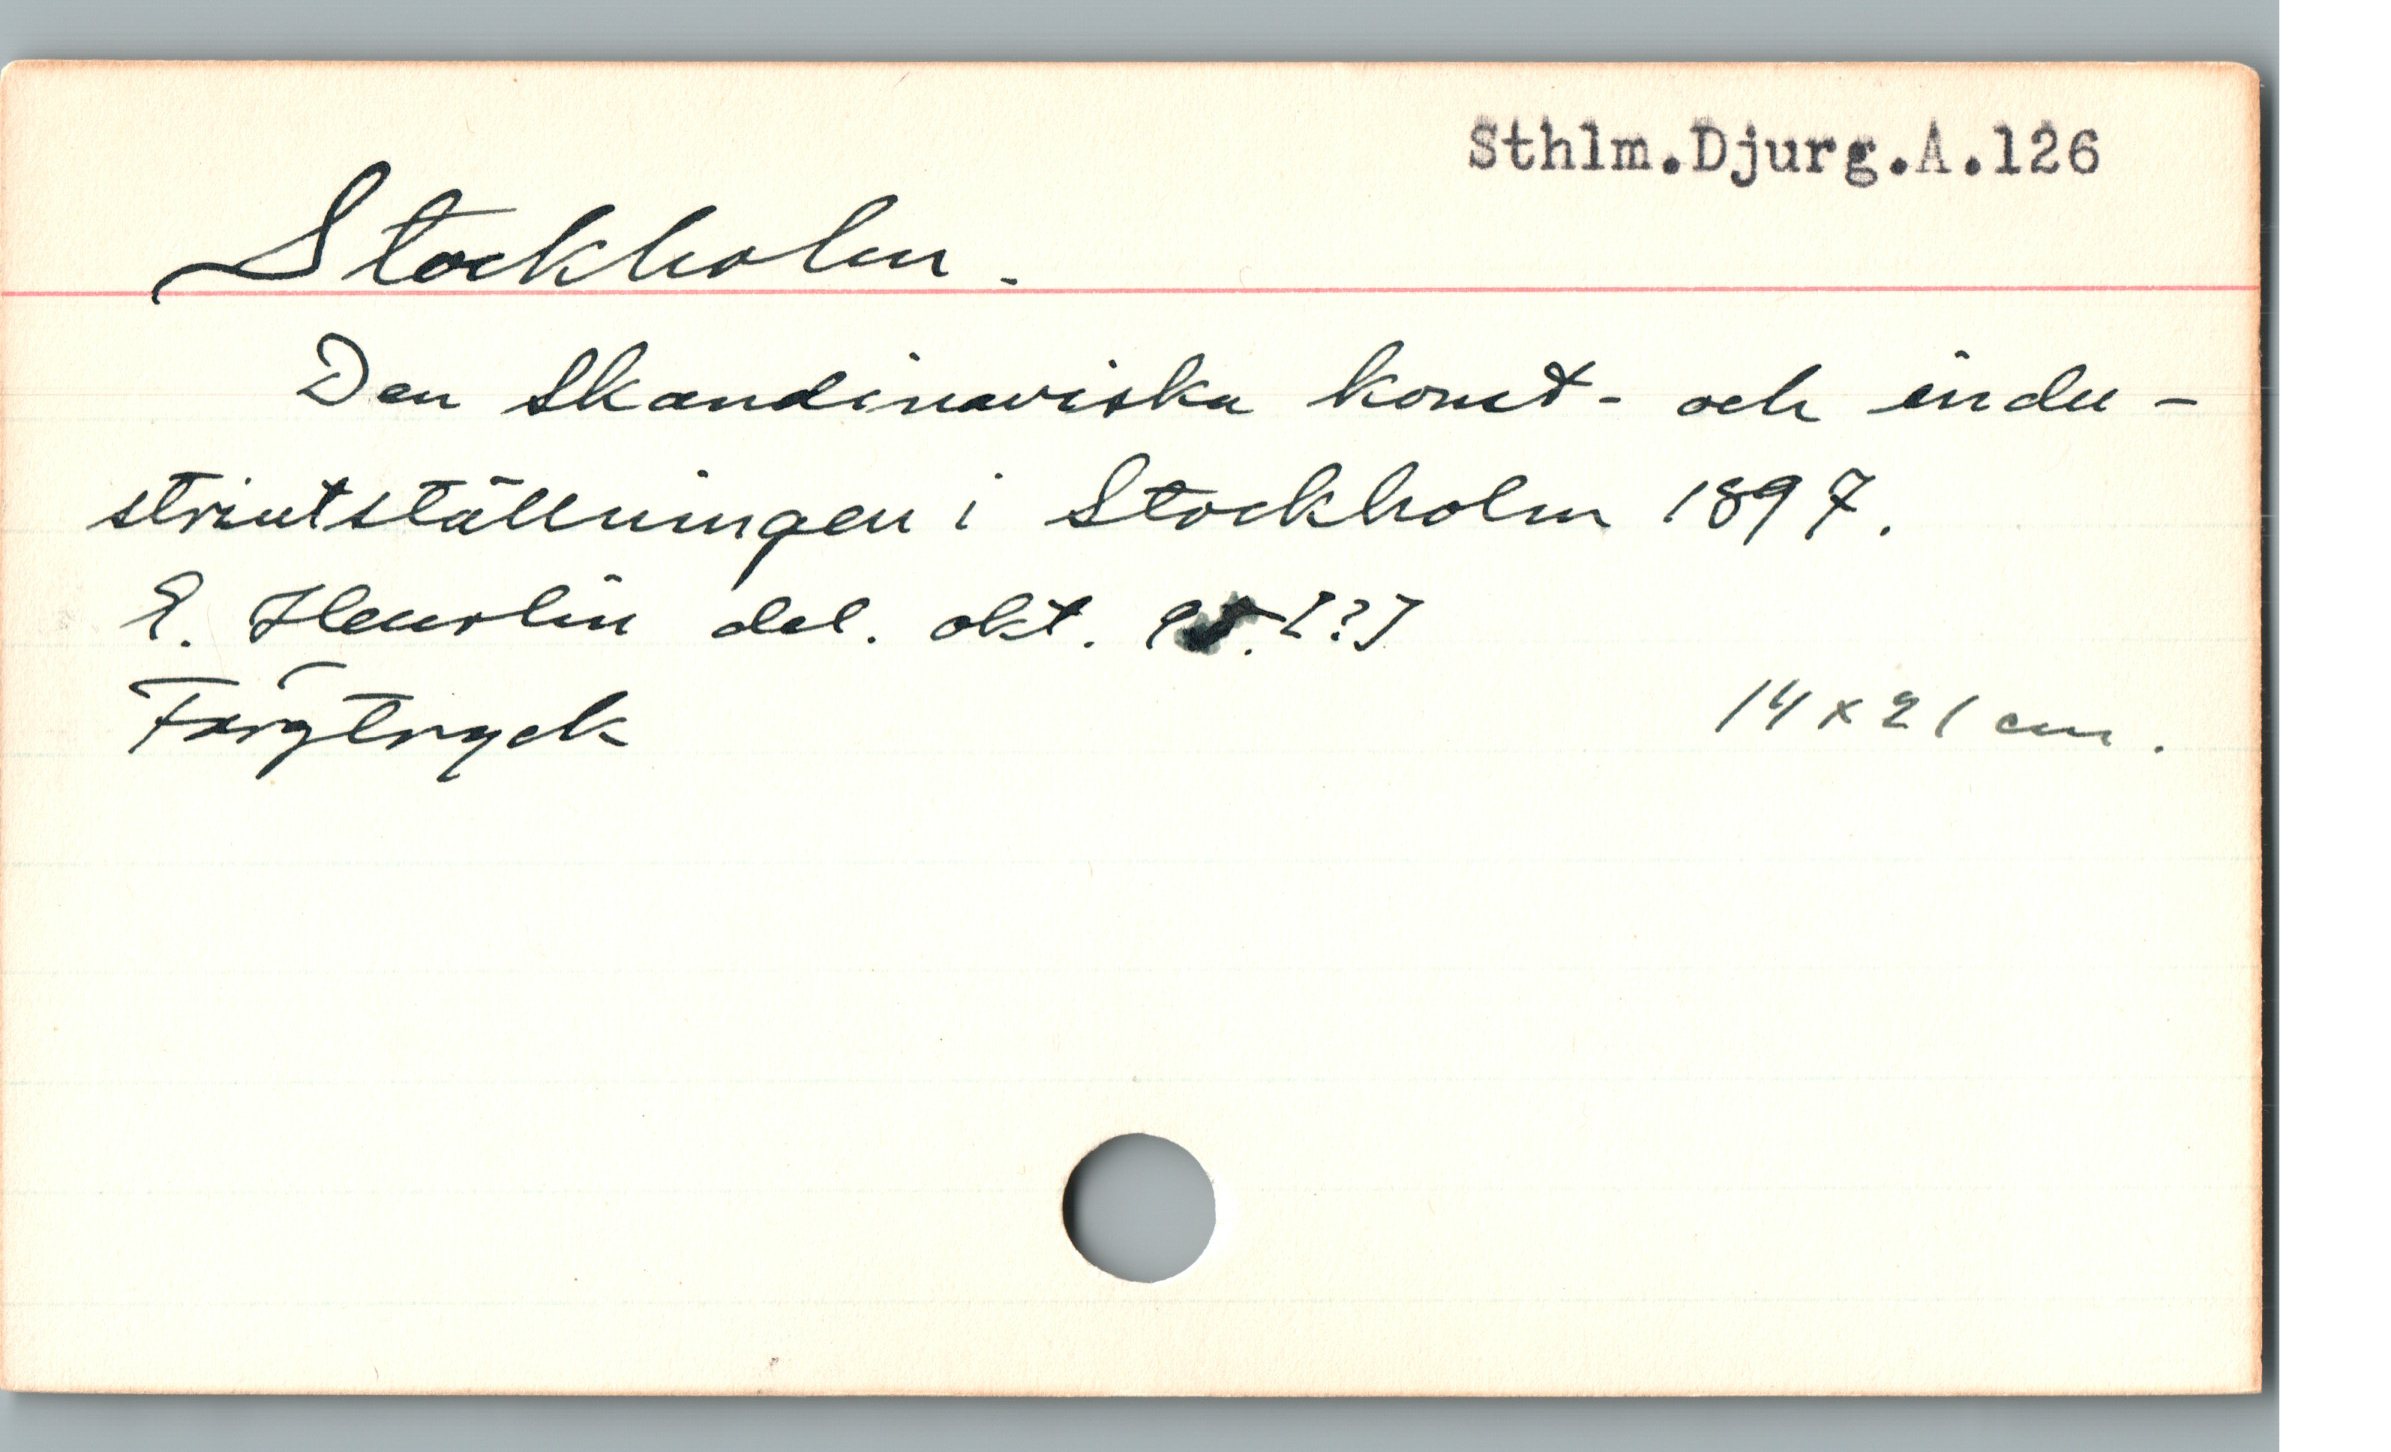 Sthlm.Djurg.A.126
Stockholm.
Den skandinaviska konst- och indu-
striutställningen i Stockholm 1897.
E. Heurlin del. okt. 95.[?]
Färgtryck 14 x 21 cm.